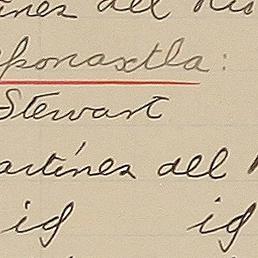 tínez del Río
ponaxtla:
Stewart
artínez del
id id